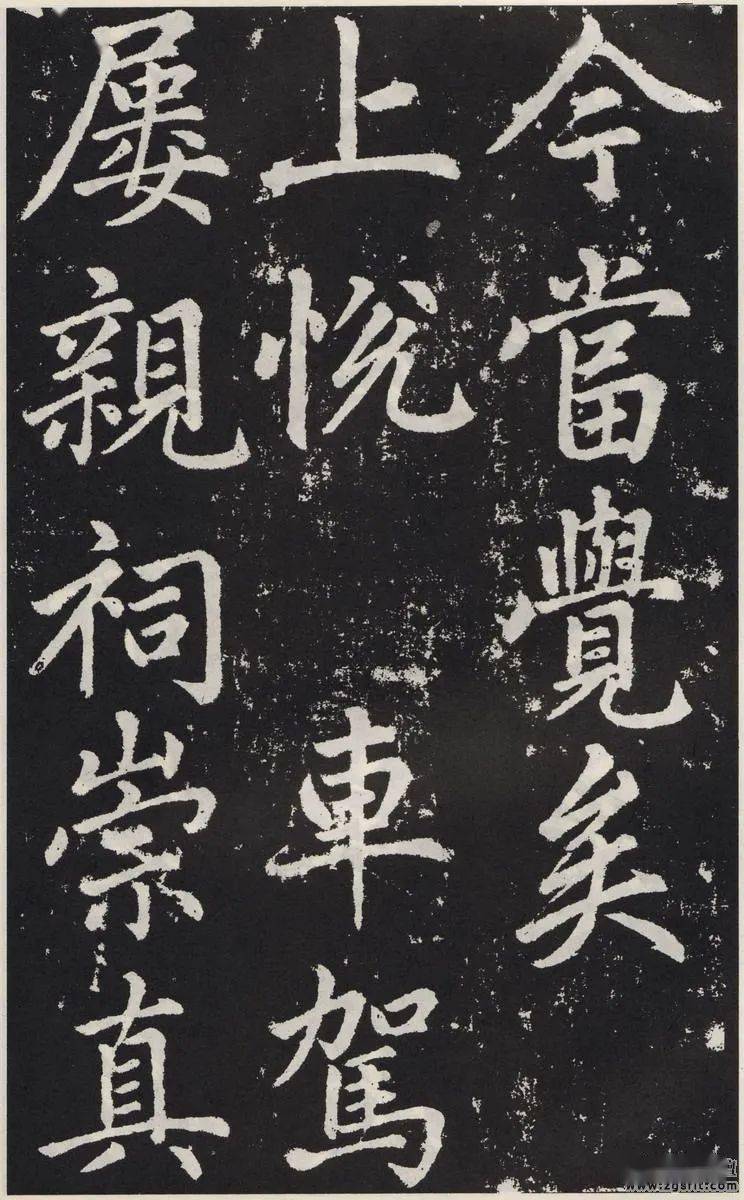 今當覺矣
上悅　車駕
屢親祠崇真
www.zgsrlt.com